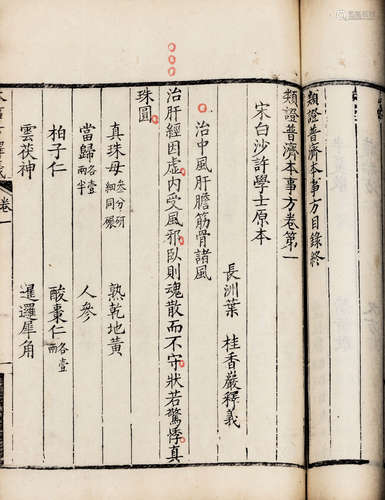 類證普濟本事方目錄終
類證普濟本事方卷第一
宋白沙許學士原本
長洲葉 桂香巖釋義
治中風肝膽筋骨諸風
治肝經因虛內受風邪臥則魂散而不守狀若驚悸真
珠圓
真珠母 叁分研細同碾 熟乾地黃
當歸 各壹兩半 人參
柏子仁 酸棗仁 各壹兩
雲茯神 暹羅犀角